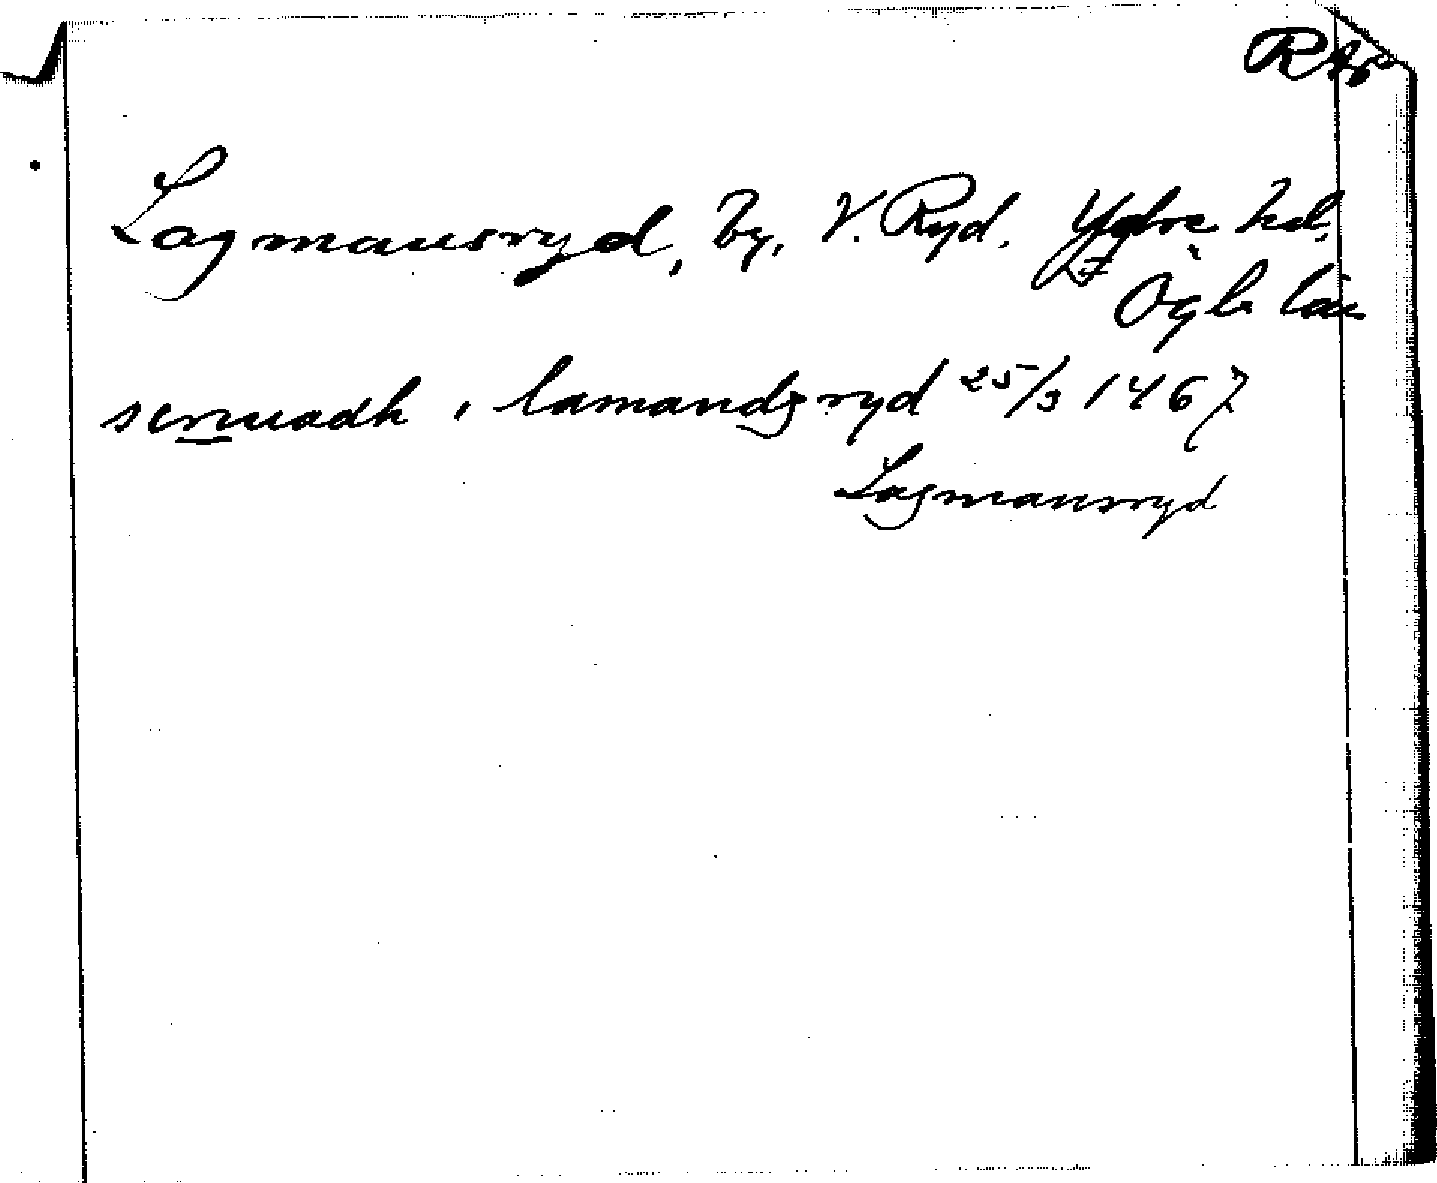 Lagmansryd, by, V. Ryd. Ydre hd.
Ögl. län
i lamandzryd 25/3 1467
Lagmansryd